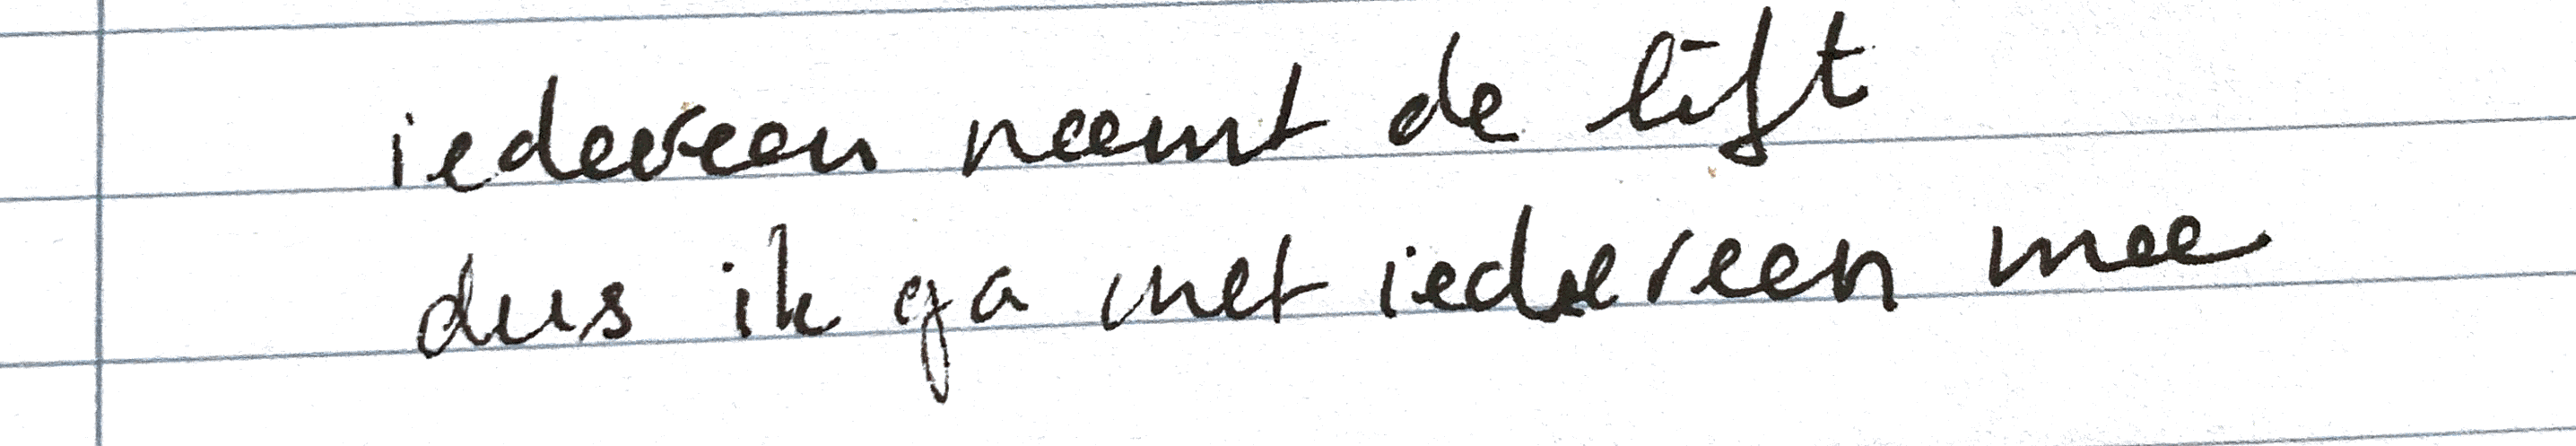 iedereen neemt de lift
dus ik ga met iedereen mee